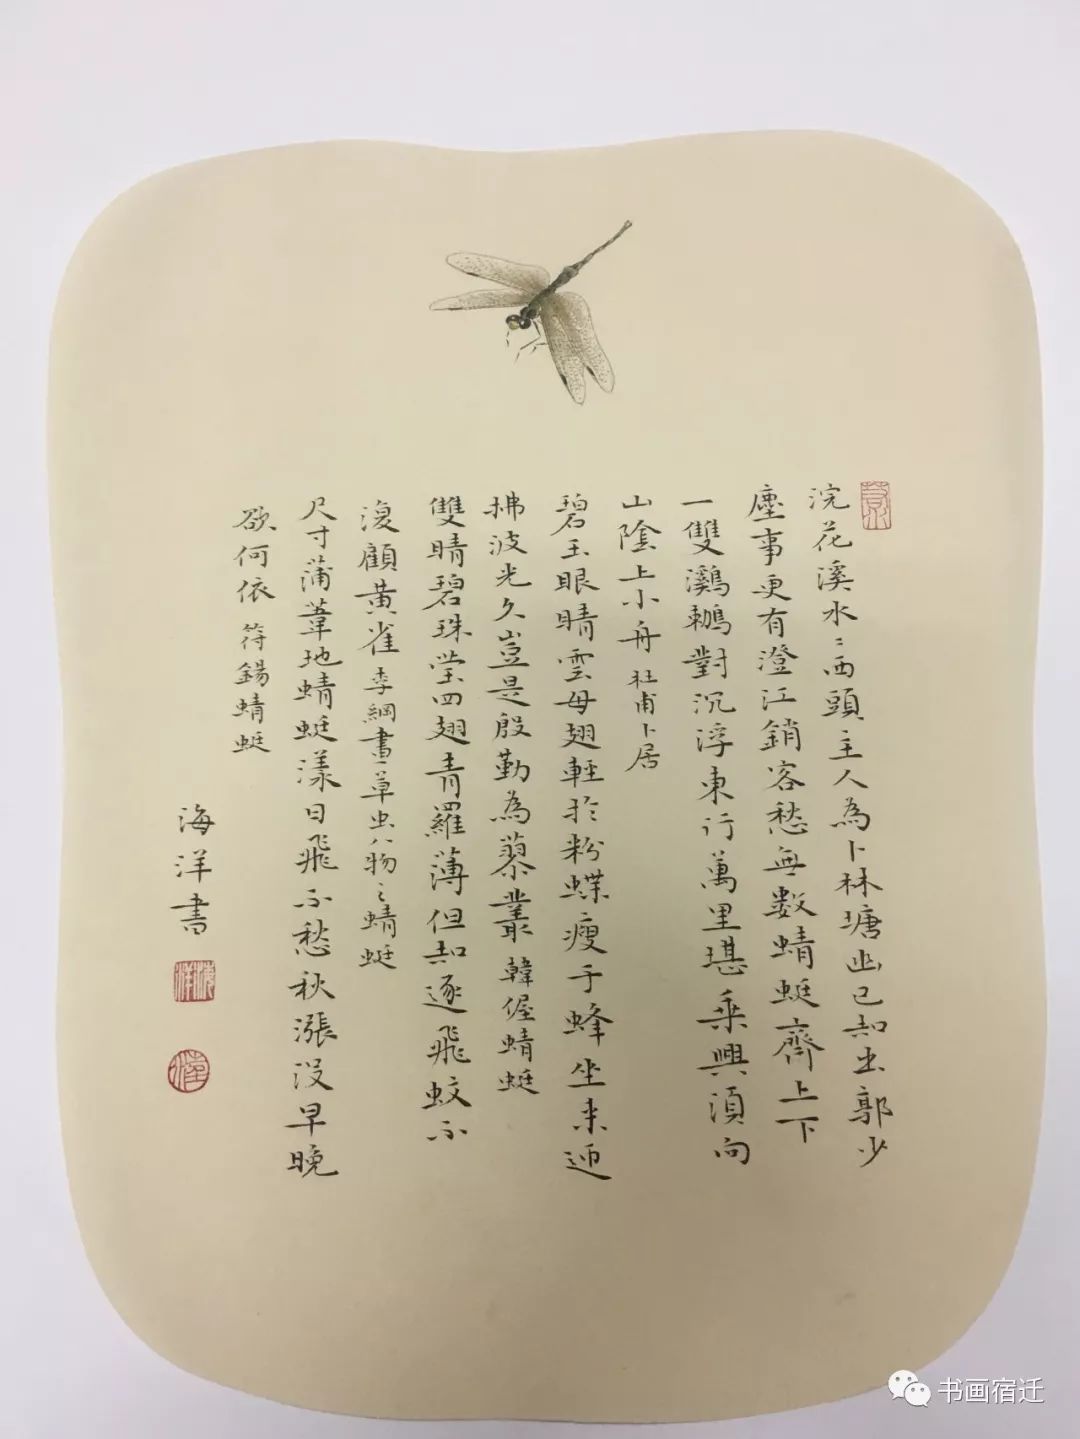 浣花溪水〻西頭主人為卜林塘幽已知出郭少
塵事更有澄江銷客愁無數蜻蜓齊上下
一雙鸂鶒對沉浮東行萬里堪乘興須向
山陰上小舟 杜甫卜居
碧玉眼睛雲母翅輕於粉蝶瘦于蜂坐来迎
拂波光久豈是殷勤為蓼叢 韓偓蜻蜓
雙睛碧珠瑩四翅青羅薄但知逐飛蚊不
復顧黃雀 李綱畫草虫八物之蜻蜓
尺寸蒲葦地蜻蜓漾日飛不愁秋漲没早晚
欲何依 符錫蜻蜓
海洋書
书画宿迁